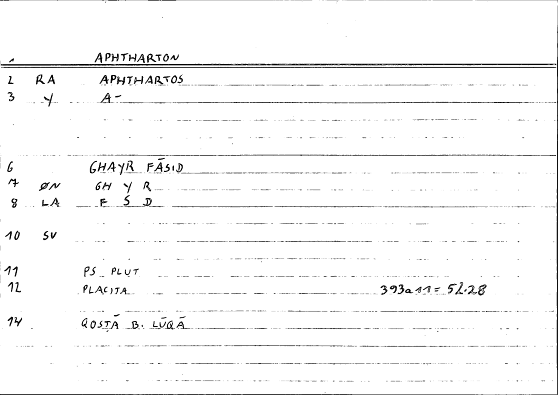 1 APHTHARTON
2 RA APHTHARTOS
3 Y A-
6 GHAYR FĀSID
7 ØN GH Y R
8 LA F S D
10 SV
11 PS PLUT
12 PLACITA 393a11 = 52.28
14 QOSTĀ B. LŪQĀ